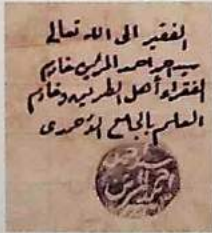 الفقير الى الله تعالى
سيد احمد المرزن خادم
الفقراء أهل الطريق وخادم
العلم بالجامع الأحمدى